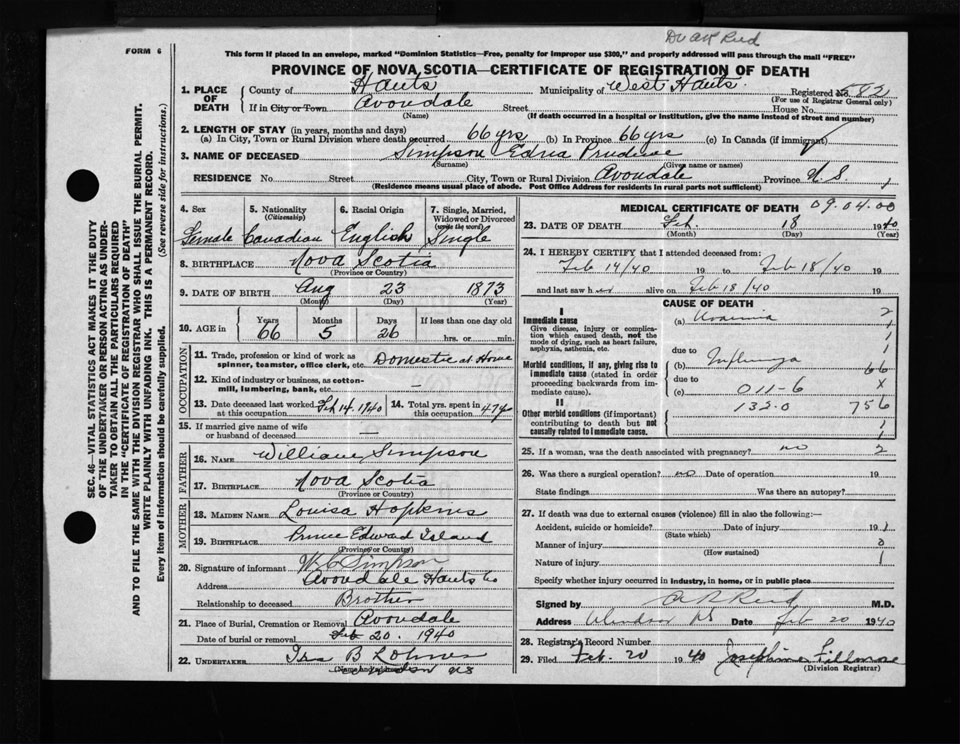 Dr A R Reid
FORM 6
This form if placed in an envelope, marked "Dominion Statistics—Free, penalty for improper use $300," and properly addressed will pass through the mail "FREE"
PROVINCE OF NOVA SCOTIA—CERTIFICATE OF REGISTRATION OF DEATH
1. PLACE OF DEATH
County of Hants Municipality of West Hants. Registered No. 82
(For use of Registrar General only)
If in City or Town Avondale Street House No.
(Name) (If death occurred in a hospital or institution, give the name instead of street and number)
2. LENGTH OF STAY (in years, months and days)
(a) In City, Town or Rural Division where death occurred 66 yrs (b) In Province 66 yrs (c) In Canada (if immigrant)
3. NAME OF DECEASED Simpson Edna Prudence
(Surname) (Given name or names)
RESIDENCE No. Street City, Town or Rural Division Avondale Province N. S.
(Residence means usual place of abode. Post Office Address for residents in rural parts not sufficient)
4. Sex 5. Nationality (Citizenship) 6. Racial Origin 7. Single, Married, Widowed or Divorced (write the word)
Female Canadian English Single
8. BIRTHPLACE Nova Scotia
(Province or Country)
9. DATE OF BIRTH Aug 23 1873
(Month) (Day) (Year)
10. AGE in Years Months Days If less than one day old
66 5 26 hrs. or min.
OCCUPATION
11. Trade, profession or kind of work as spinner, teamster, office clerk, etc. Domestic at Home
12. Kind of industry or business, as cotton-mill, lumbering, bank, etc. —
13. Date deceased last worked at this occupation Feb 14. 1940 14. Total yrs. spent in this occupation 47 yo
15. If married give name of wife or husband of deceased —
FATHER
16. NAME William Simpson
17. BIRTHPLACE Nova Scotia
(Province or Country)
MOTHER
18. MAIDEN NAME Louisa Hopkins
19. BIRTHPLACE Prince Edward Island
(Province or Country)
20. Signature of informant W C Simpson
Address Avondale Hants Co
Relationship to deceased Brother
21. Place of Burial, Cremation or Removal Avondale
Date of burial or removal Feb 20. 1940
22. UNDERTAKER Ira B Lohnes
(Name and address) Windsor NS
MEDICAL CERTIFICATE OF DEATH 09.04.00
23. DATE OF DEATH Feb. 18 1940
(Month) (Day) (Year)
24. I HEREBY CERTIFY that I attended deceased from:
Feb 14/40 19 to Feb 18/40 19
and last saw her alive on Feb 18/40 19
CAUSE OF DEATH
I
Immediate cause
Give disease, injury or complication which caused death, not the mode of dying, such as heart failure, asphyxia, asthenia, etc.
(a) Uraemia 2
due to
Morbid conditions, if any, giving rise to immediate cause (stated in order proceeding backwards from immediate cause).
(b) Influenza 66
due to
(c) 011-6 X
II
132.0 756
Other morbid conditions (if important) contributing to death but not causally related to immediate cause.
25. If a woman, was the death associated with pregnancy? no 2
26. Was there a surgical operation? no Date of operation 19
State findings Was there an autopsy?
27. If death was due to external causes (violence) fill in also the following:—
Accident, suicide or homicide? Date of injury 19
(State which)
Manner of injury
(How sustained)
Nature of injury
Specify whether injury occurred in industry, in home, or in public place
Signed by A R Reid M.D.
Address Windsor NS Date Feb 20 1940
28. Registrar's Record Number
29. Filed Feb. 20 1940 Josephine Fillmore
(Division Registrar)
SEC. 46—VITAL STATISTICS ACT MAKES IT THE DUTY
OF THE UNDERTAKER OR PERSON ACTING AS UNDERTAKER TO OBTAIN ALL THE PARTICULARS REQUIRED
IN THE "CERTIFICATE OF REGISTRATION OF DEATH"
AND TO FILE THE SAME WITH THE DIVISION REGISTRAR WHO SHALL ISSUE THE BURIAL PERMIT.
WRITE PLAINLY WITH UNFADING INK. THIS IS A PERMANENT RECORD.
Every item of information should be carefully supplied. (See reverse side for instructions.)